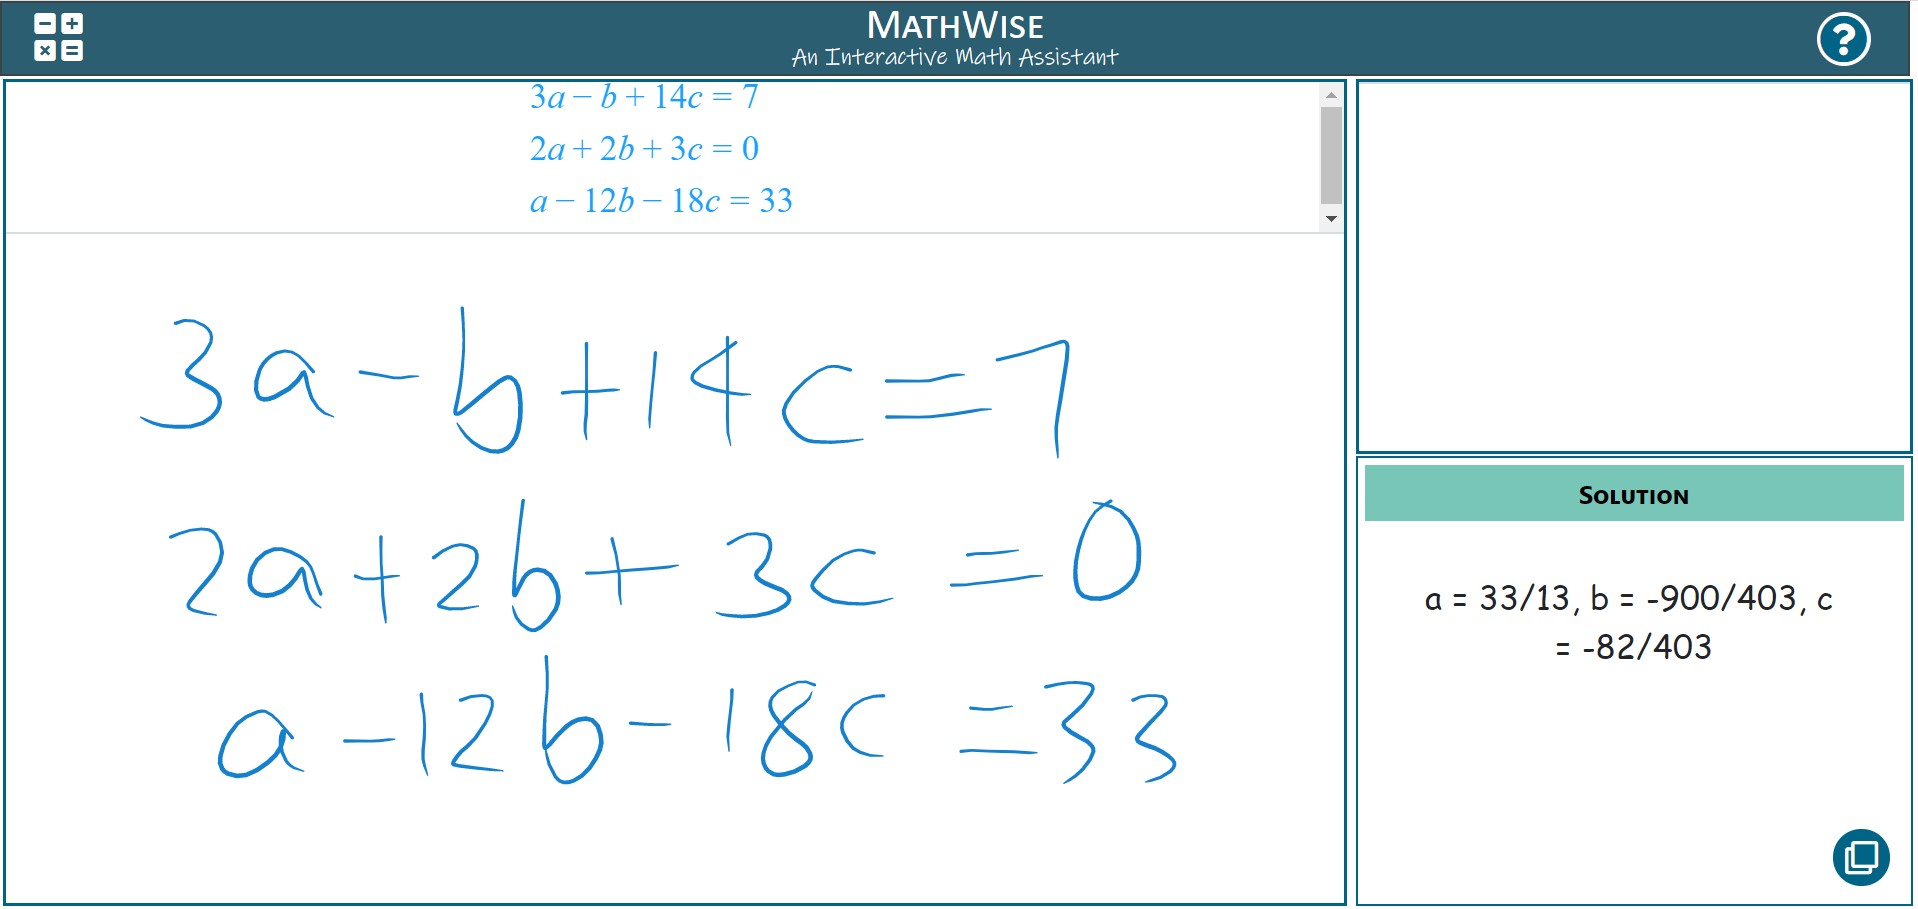 MATHWISE
An Interactive Math Assistant
?
3a − b + 14c = 7
2a + 2b + 3c = 0
a − 12b − 18c = 33
3a − b + 14c = 7
2a + 2b + 3c = 0
a − 12b − 18c = 33
SOLUTION
a = 33/13, b = -900/403, c
= -82/403